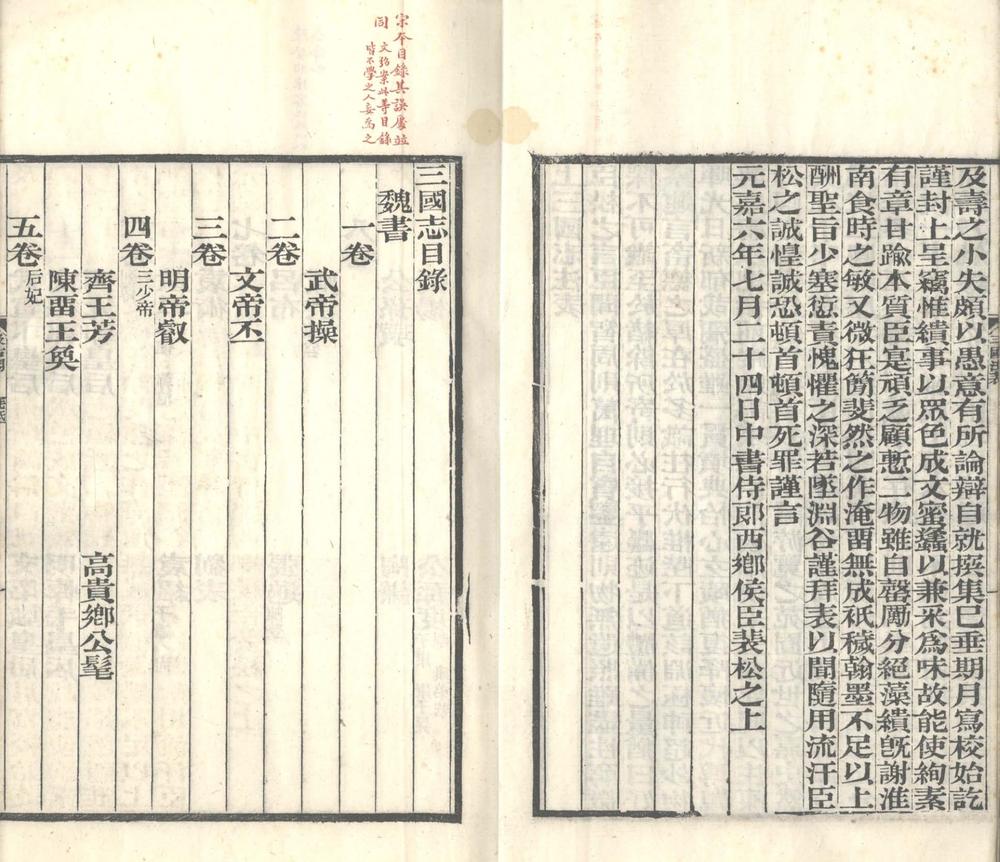 及壽之小失頗以愚意有所論辯自就撰集已垂期月寫校始訖
謹封上呈竊惟繢事以眾色成文蜜蠭以兼采爲味故能使絢素
有章甘踰本質臣寔頑乏顧慙二物雖自罄勵分絕藻繢旣謝淮
南食時之敏又微狂簡斐然之作淹畱無成祇穢翰墨不足以上
酬聖旨少塞愆責愧懼之深若墜淵谷謹拜表以聞隨用流汗臣
松之誠惶誠恐頓首頓首死罪謹言
元嘉六年七月二十四日中書侍郎西鄉侯臣裴松之上
宋本目錄其誤處竝
同
文弨案此等目錄
皆不學之人妄爲之
三國志目錄
魏書
一卷
武帝操
二卷
文帝丕
三卷
明帝叡
四卷 三少帝
齊王芳 高貴鄉公髦
陳畱王奐
五卷 后妃